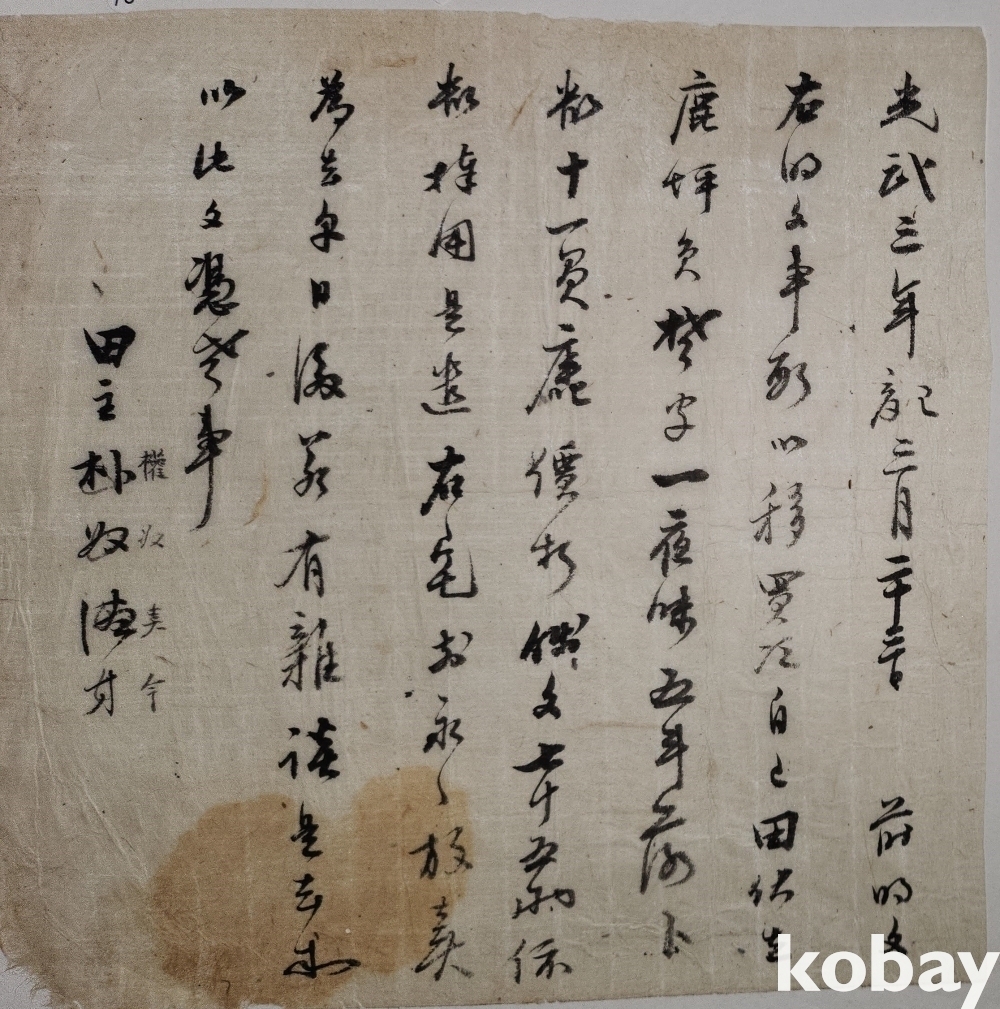 光武三年記三月二十二日 前明文
右明文事段以移買次自己田伏在
鹿坪員 字一夜味五斗落卜
數十一負廛價折錢文七十五兩依
數捧用是遣右宅前永〻放賣
爲去乎日後若有雜談是去等
以此文憑考事
田主朴奴 才
權奴 今
kobay